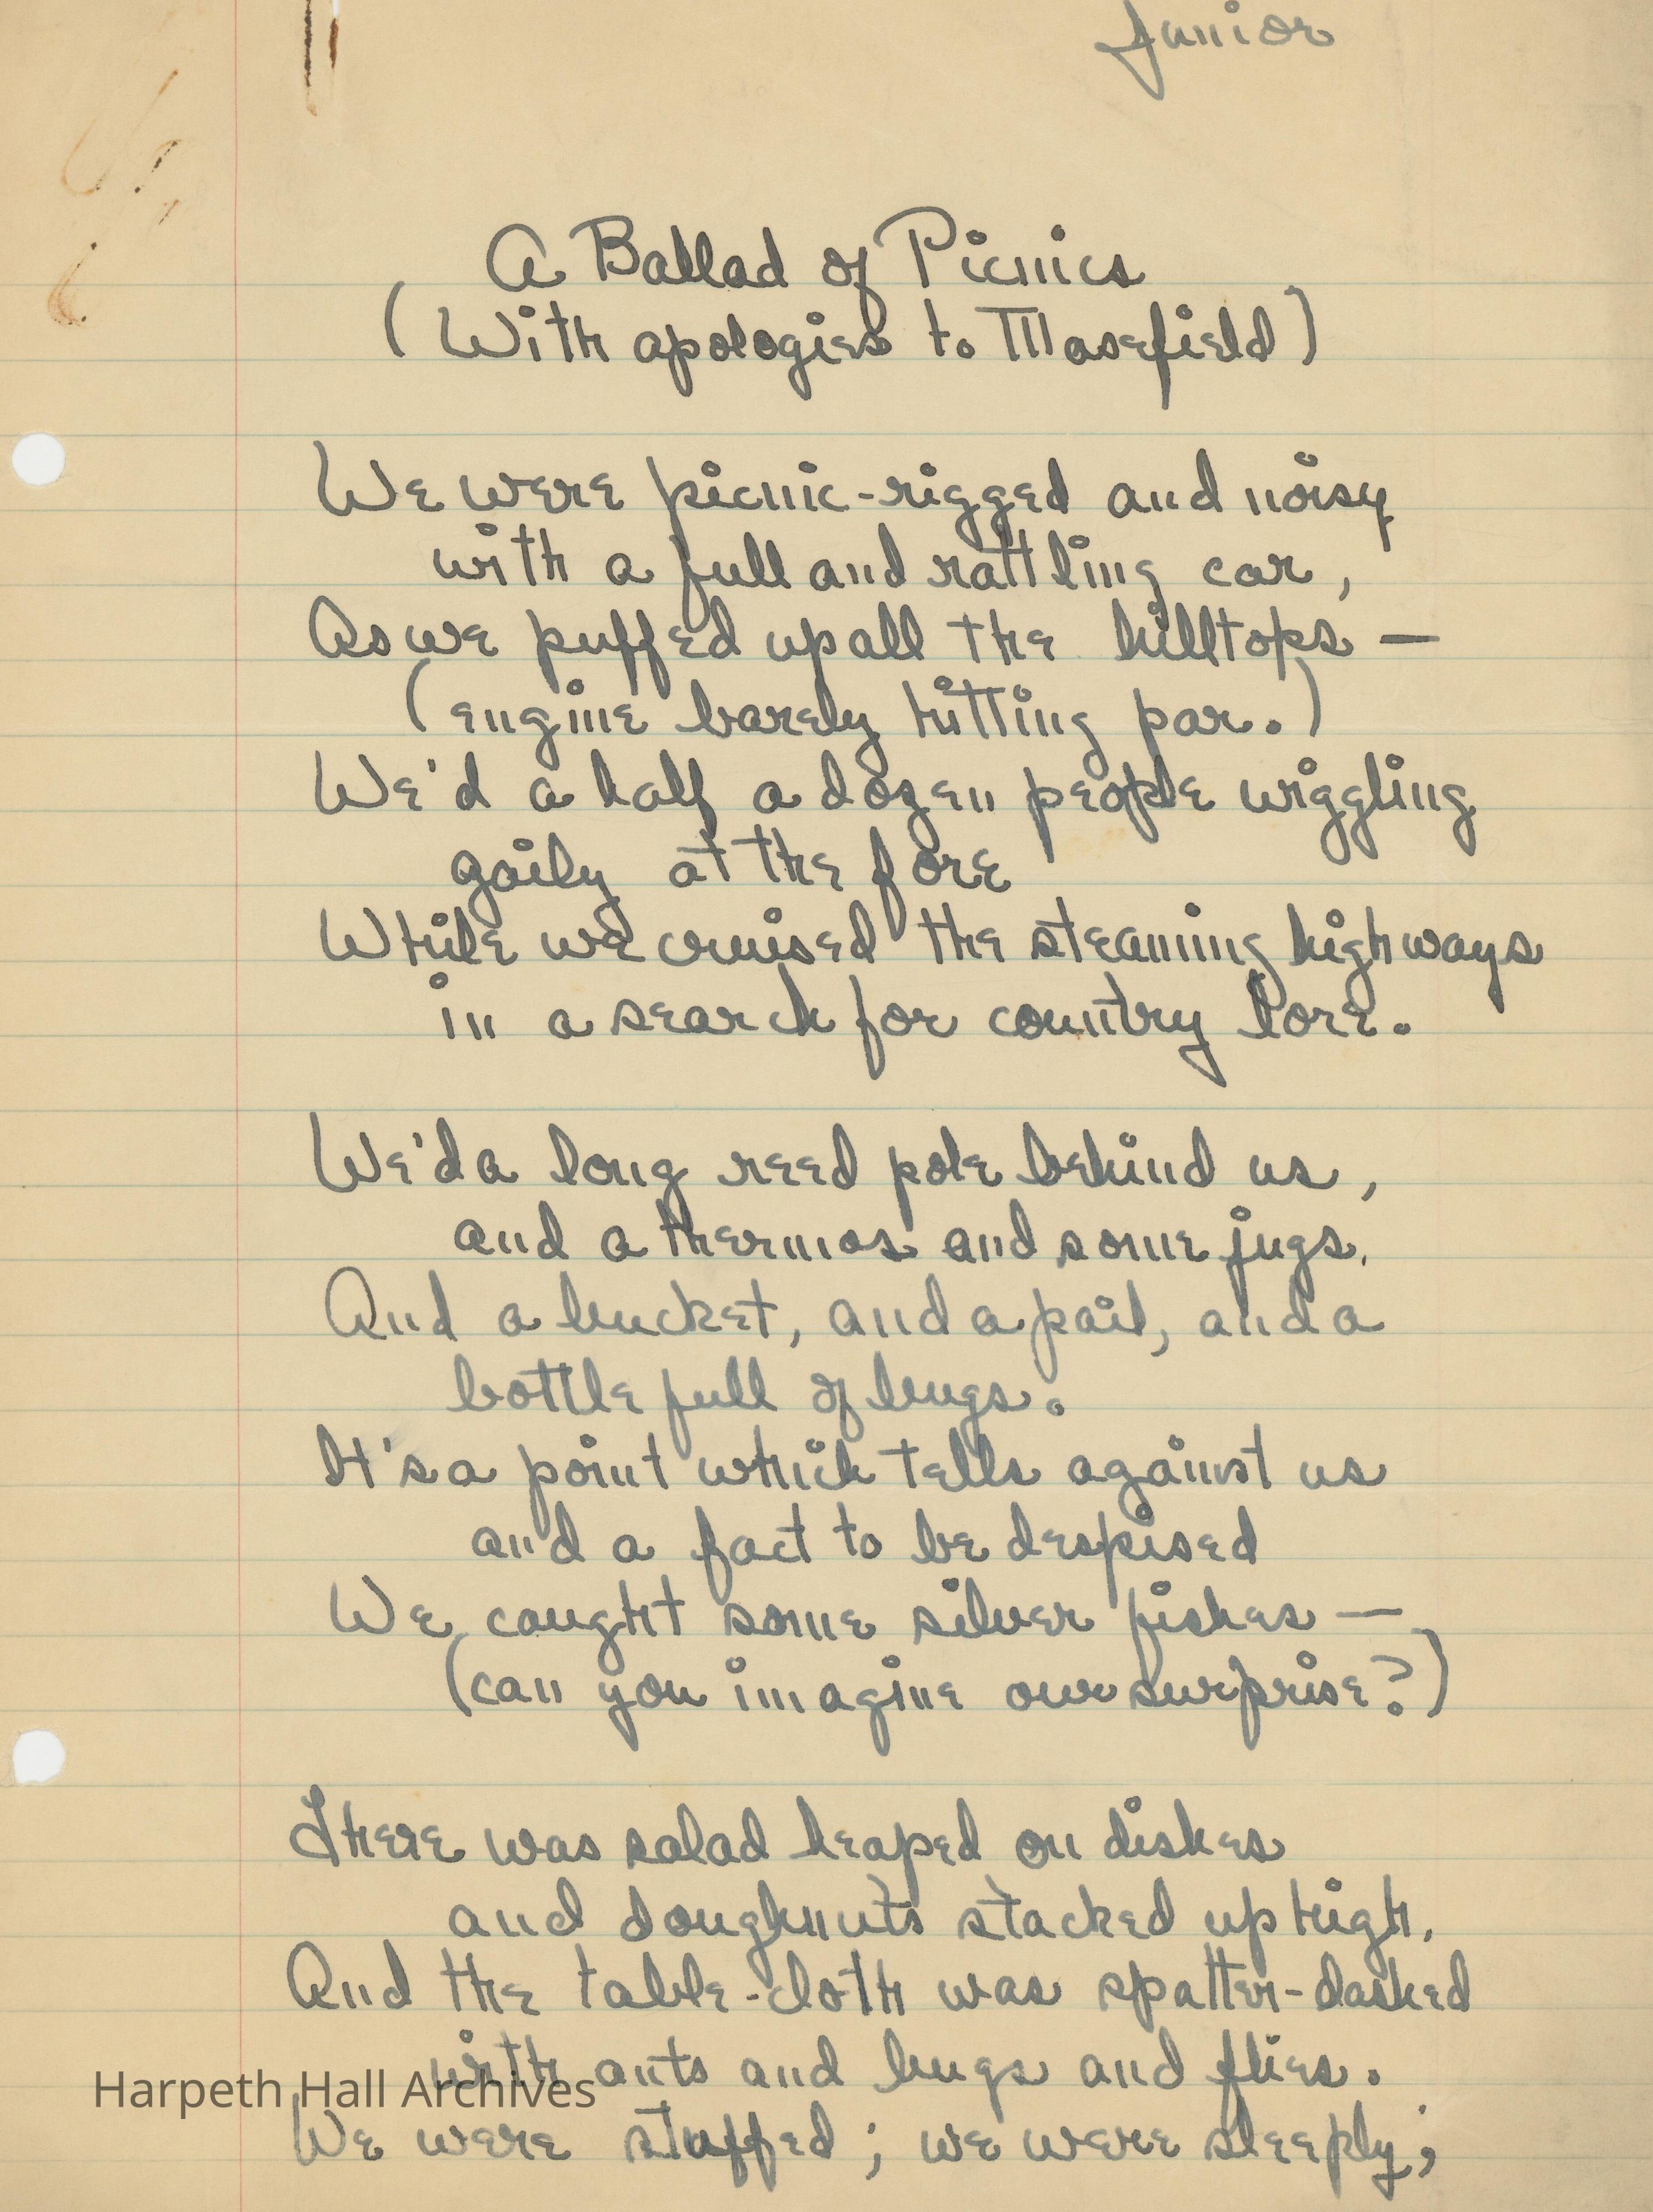 Junior
A Ballad of Picnics
(With apologies to Masefield)
We were picnic-rigged and noisy
with a full and rattling car,
As we puffed up all the hilltops —
(engine barely hitting par.)
We'd a half a dozen people wiggling
gaily at the fore
While we cruised the steaming highways
in a search for country lore.
We'd a long reed pole behind us,
and a thermos and some jugs.
And a bucket, and a pail, and a
bottle full of bugs.
It's a point which tells against us
and a fact to be despised
We caught some silver fishes —
(can you imagine our surprise?)
There was salad heaped on dishes
and doughnuts stacked up high.
And the table-cloth was spatter-dashed
with ants and bugs and flies.
Harpeth Hall Archives
We were stuffed; we were sleeply;